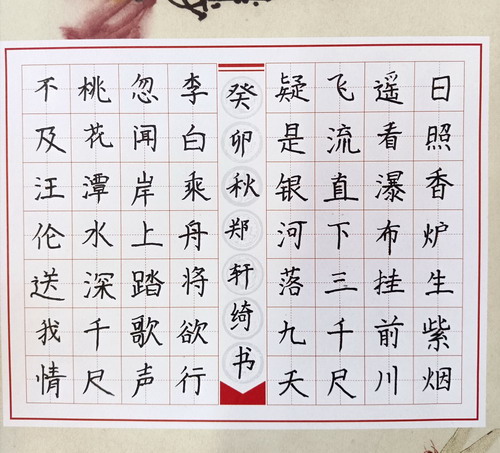 日照香炉生紫烟
遥看瀑布挂前川
飞流直下三千尺
疑是银河落九天
癸卯秋郑轩绮书
李白乘舟将欲行
忽闻岸上踏歌声
桃花潭水深千尺
不及汪伦送我情